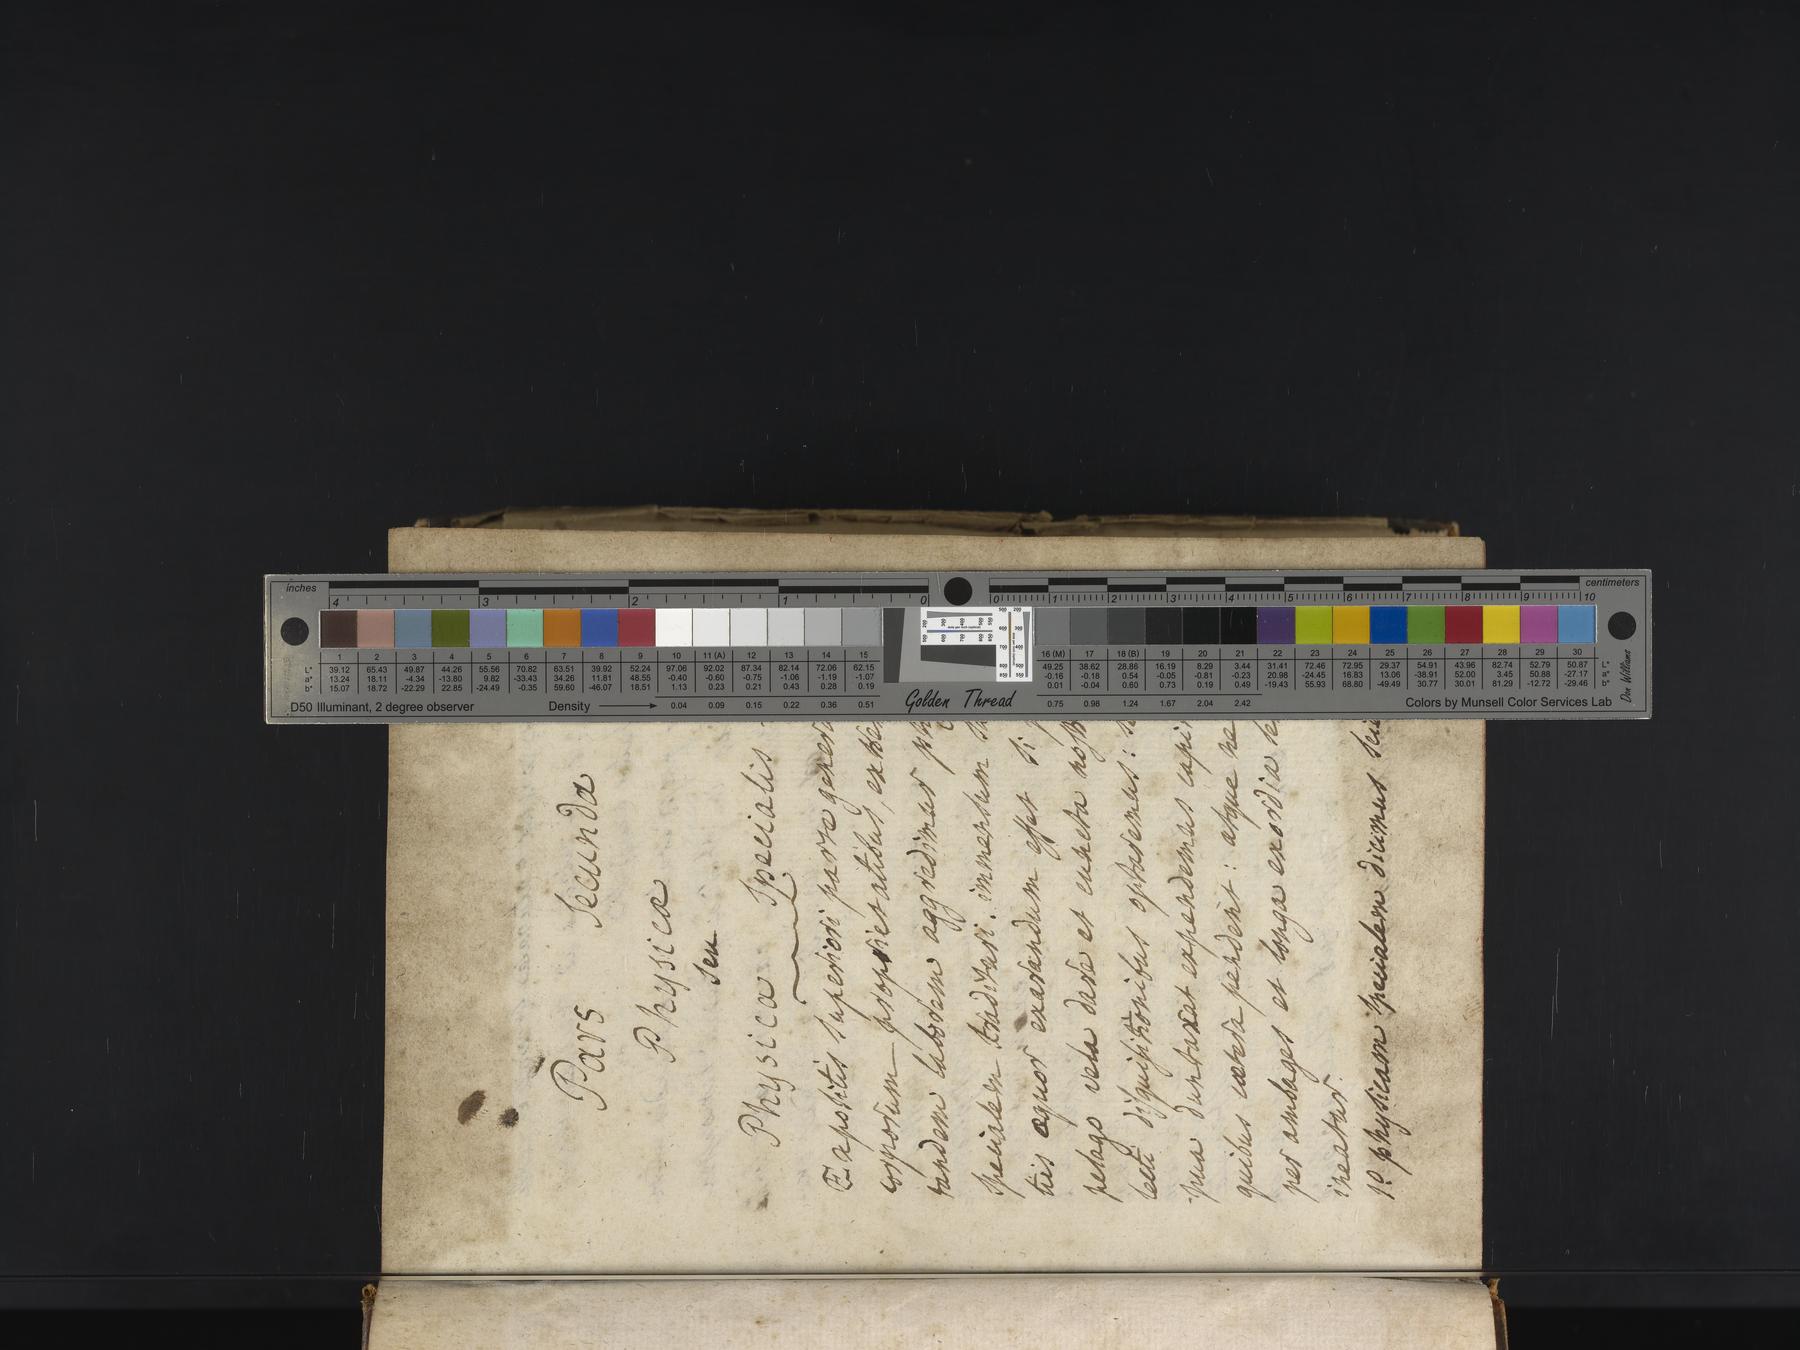 inches
centimeters
4 3 2 1 0
0 1 2 3 4 5 6 7 8 9 10
1 2 3 4 5 6 7 8 9 10 11 (A) 12 13 14 15
L* 39.12 65.43 49.87 44.26 55.56 70.82 63.51 39.92 52.24 97.06 92.02 87.34 82.14 72.06 62.15
a* 13.24 18.11 -4.34 -13.80 9.82 -33.43 34.26 11.81 48.55 -0.40 -0.60 -0.75 -1.06 -1.19 -1.07
b* 15.07 18.72 -22.29 22.85 -24.49 -0.35 59.60 -46.07 18.51 1.13 0.23 0.21 0.43 0.28 0.19
16 (M) 17 18 (B) 19 20 21 22 23 24 25 26 27 28 29 30
49.25 38.62 28.86 16.19 8.29 3.44 31.41 72.46 72.95 29.37 54.91 43.96 82.74 52.79 50.87 L*
-0.16 -0.18 0.54 -0.05 -0.81 -0.23 20.98 -24.45 16.83 13.06 -38.91 52.00 3.45 50.88 -27.17 a*
0.01 -0.04 0.60 0.73 0.19 0.49 -19.43 55.93 68.80 -49.49 30.77 30.01 81.29 -12.72 -29.46 b*
D50 Illuminant, 2 degree observer
Density 0.04 0.09 0.15 0.22 0.36 0.51
Golden Thread
0.75 0.98 1.24 1.67 2.04 2.42
Colors by Munsell Color Services Lab
Don Williams
Pars Secunda
Physica
seu
Physica Specialis
Expositis superiori parte genera
corporum proprietatibus, exter
tandem laborem aggredimur ph
specialem tradituri. immensum
tis æquor exarandum esset si
pelago vela dare et cuncta nost
lecti disquisitionibus optaremus:
-pua duntaxat expendemus capi
quibus cætera pendent: atque ne
per ambages et longa exordia te
ineatur.
1º physicam specialem dicimus sci